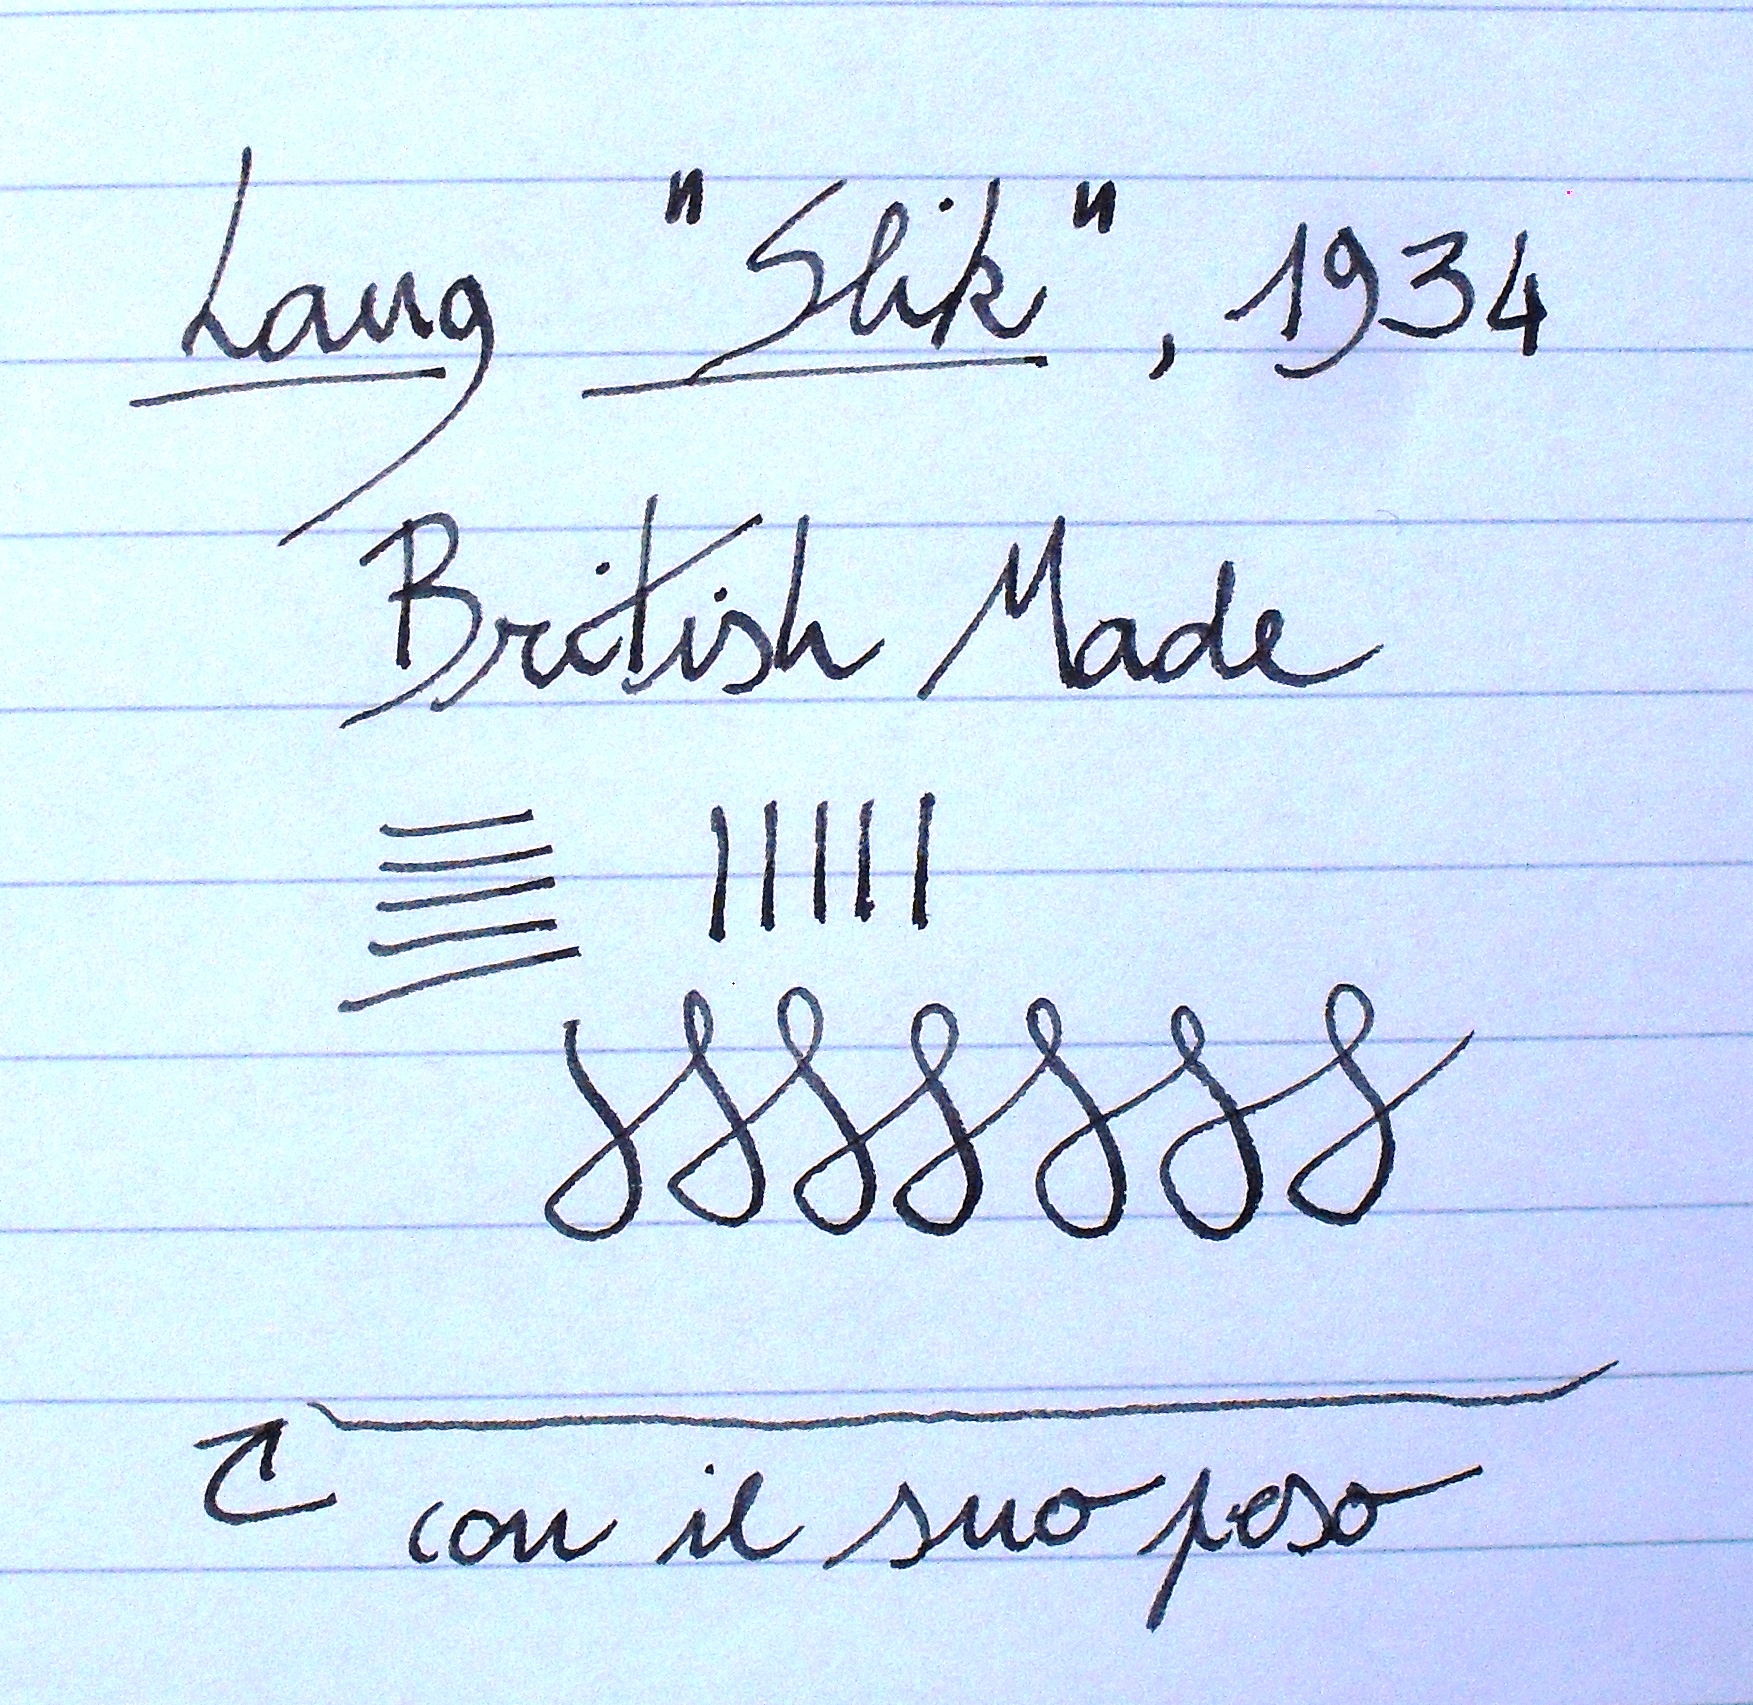 Lang "Slik", 1934
British Made
con il suo peso